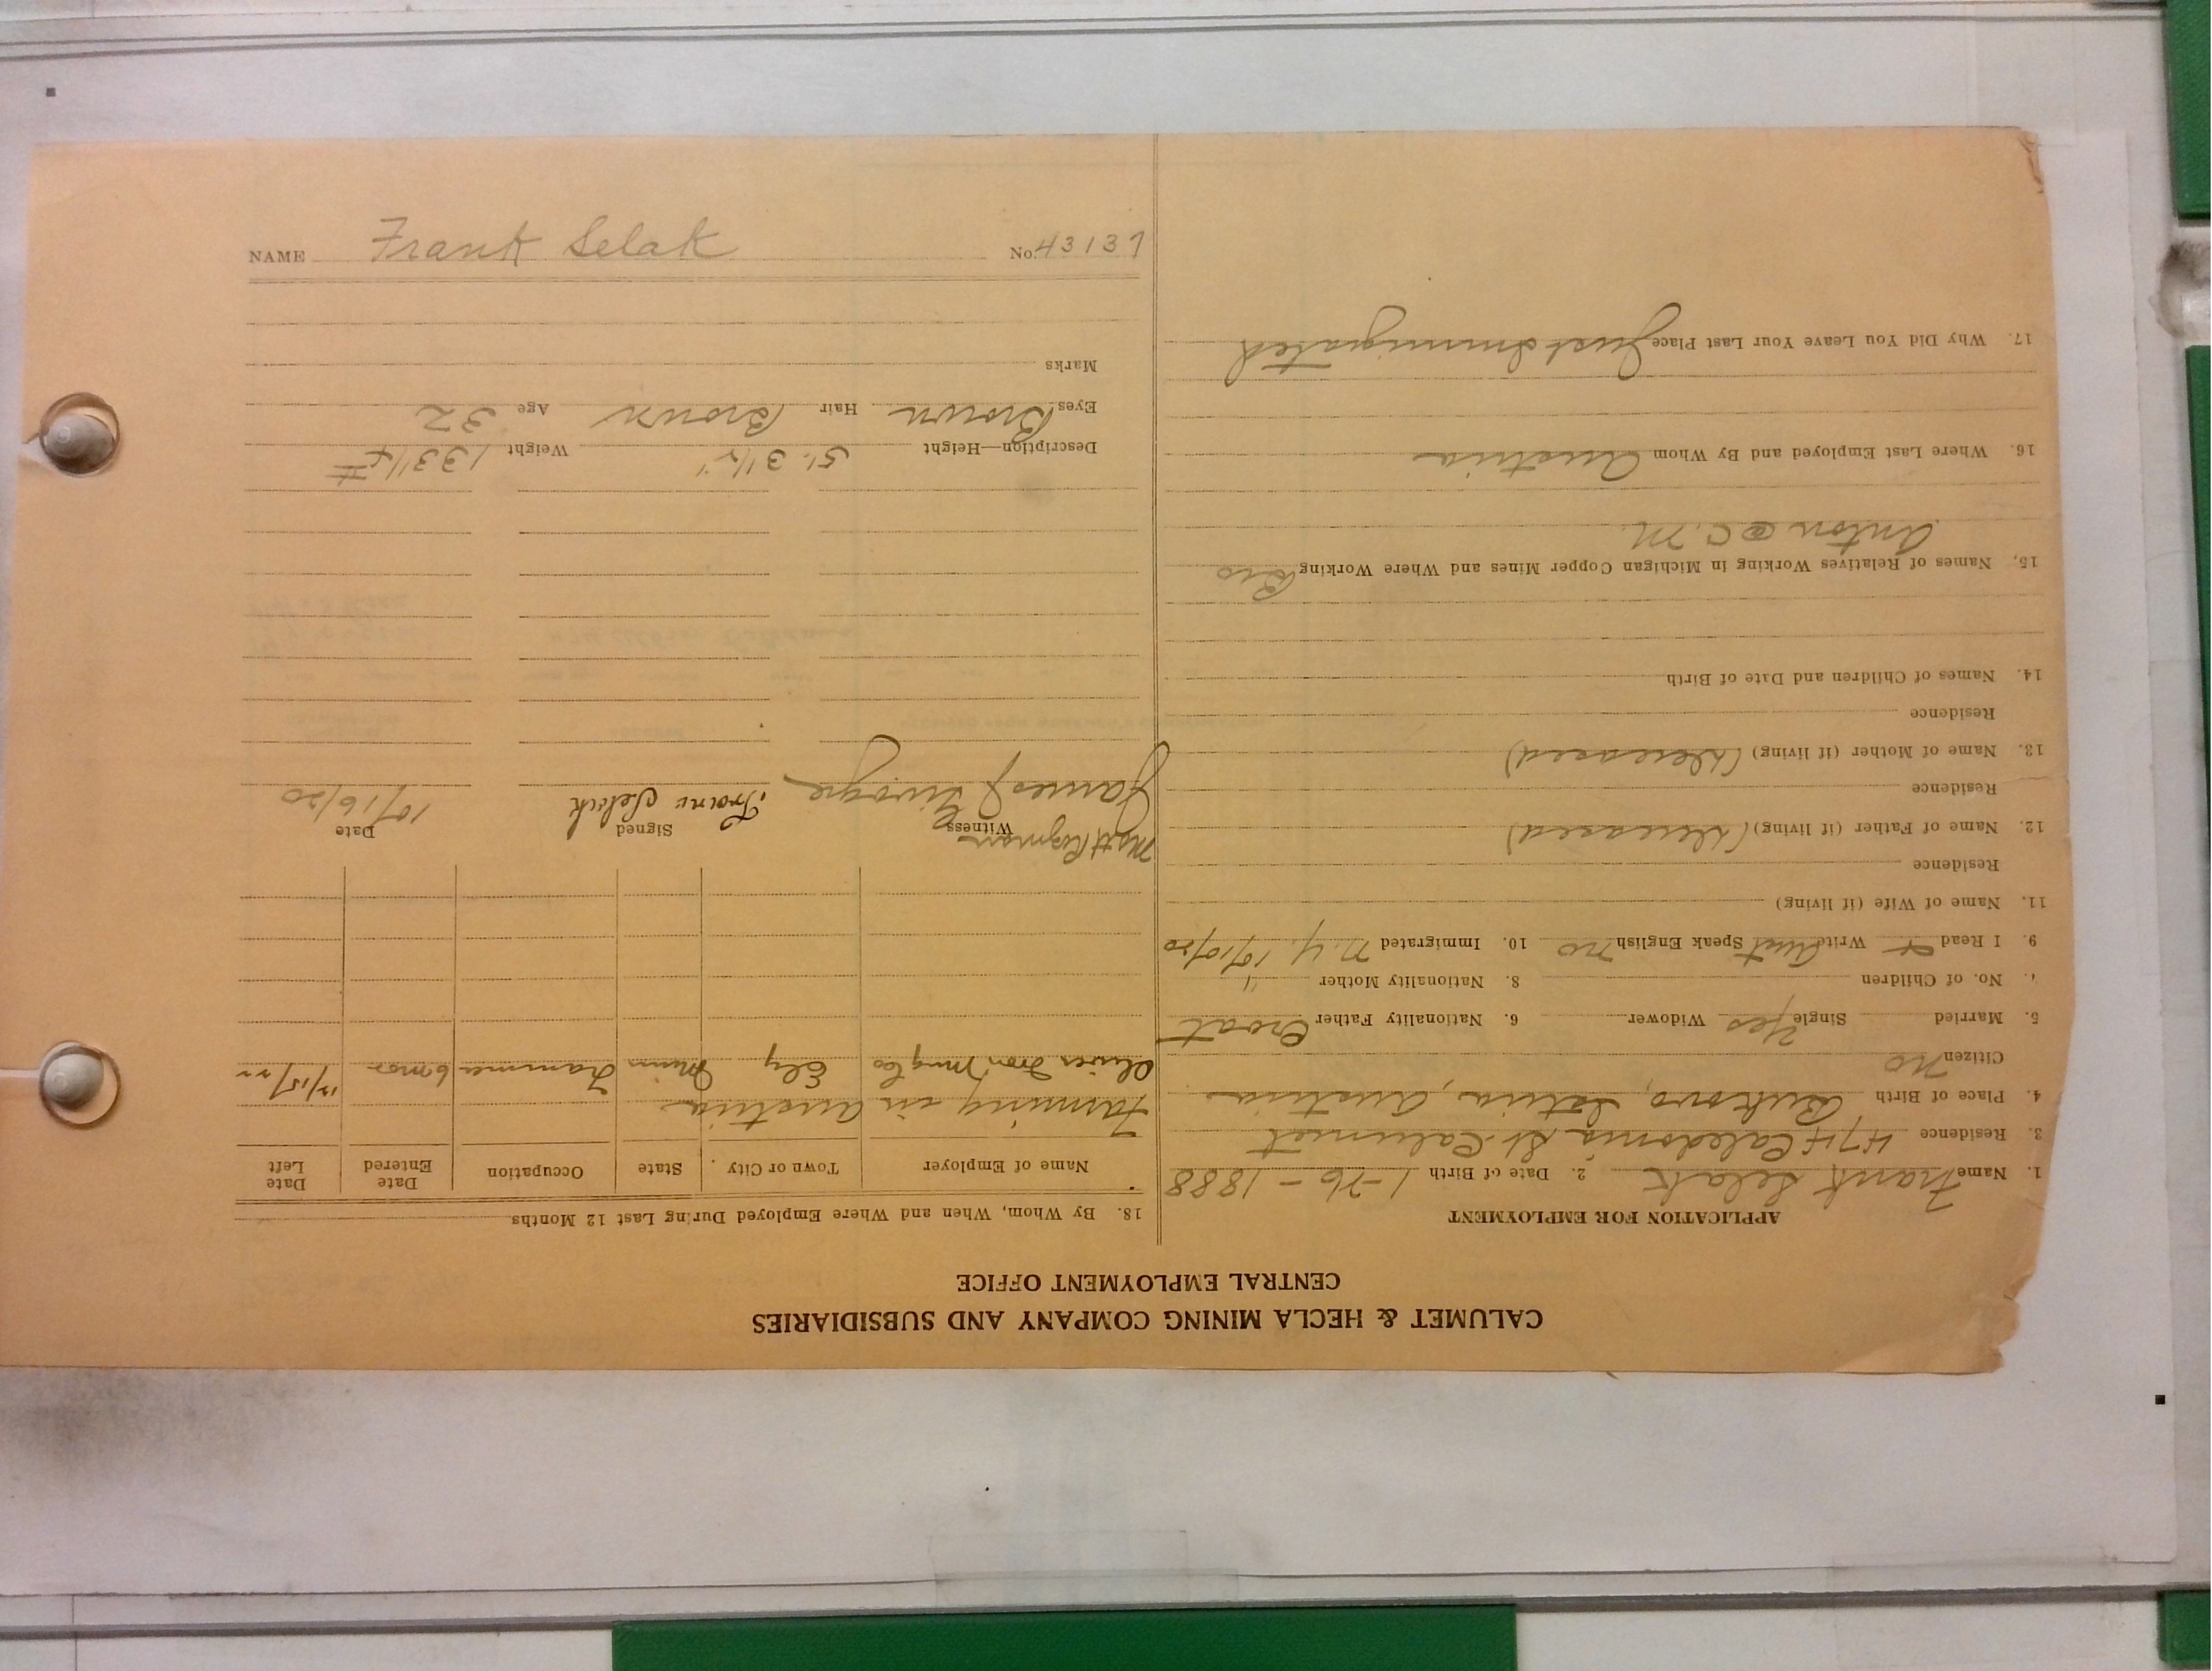 CALUMET & HECLA MINING COMPANY AND SUBSIDIARIES
CENTRAL EMPLOYMENT OFFICE
APPLICATION FOR EMPLOYMENT
1. Name Frank Selak 2. Date of Birth 1-26-1888
3. Residence 474 Caledonia St. Calumet
4. Place of Birth Austria
Citizen No
5. Married Single Yes Widower 6. Nationality Father Croat
7. No. of Children 8. Nationality Mother "
9. I Read & Write Aust Speak English no 10. Immigrated N.Y. 10/10/20
11. Name of Wife (if living)
Residence
12. Name of Father (if living) (deceased)
Residence
13. Name of Mother (if living) (deceased)
Residence
14. Names of Children and Date of Birth
15. Names of Relatives Working in Michigan Copper Mines and Where Working Bro
Anton @ C. M.
16. Where Last Employed and By Whom Austria
17. Why Did You Leave Your Last Place Just Immigrated
18. By Whom, When and Where Employed During Last 12 Months
Name of Employer Town or City State Occupation Date Entered Date Left
Farming in Austria
Oliver Iron Mng Co Ely Minn Trammer 6 mos
Witness Signed Date
Matt
James J Frank Selak 10/16/20
Description—Height 5' 3½" Weight 133½ #
Eyes Brown Hair Brown Age 32
Marks
NAME Frank Selak No. 43137